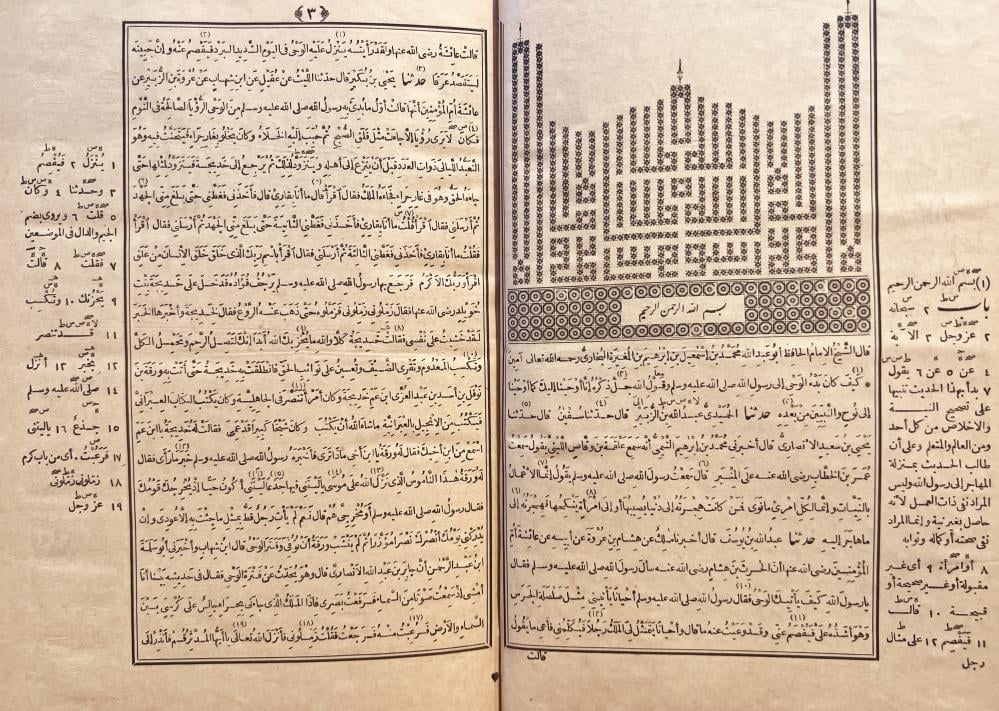 بسم الله الرحمن الرحيم
قال الشيخ الامام الحافظ أبو عبد الله محمد بن اسمعيل بن ابرهيم بن المغيرة البخارى رحمه الله تعالى آمين
كيف كان بدء الوحى الى رسول الله صلى الله عليه وسلم وقول الله جل ذكره انا أوحينا اليك كما أوحينا
الى نوح والنبيين من بعده حدثنا الحميدى عبد الله بن الزبير قال حدثنا سفين قال حدثنا
يحيى بن سعيد الانصارى قال أخبرنى محمد بن ابرهيم التيمى أنه سمع علقمة بن وقاص الليثى يقول سمعت
عمر بن الخطاب رضى الله عنه على المنبر قال سمعت رسول الله صلى الله عليه وسلم يقول انما الاعمال
بالنيات وانما لكل امرئ ما نوى فمن كانت هجرته الى دنيا يصيبها أو الى امرأة ينكحها فهجرته الى
ما هاجر اليه حدثنا عبد الله بن يوسف قال أخبرنا ملك عن هشام بن عروة عن أبيه عن عائشة أم
المؤمنين رضى الله عنها أن الحرث بن هشام رضى الله عنه سأل رسول الله صلى الله عليه وسلم فقال
يا رسول الله كيف يأتيك الوحى فقال رسول الله صلى الله عليه وسلم أحيانا يأتينى مثل صلصلة الجرس
وهو أشده على فيفصم عنى وقد وعيت عنه ما قال وأحيانا يتمثل لى الملك رجلا فيكلمنى فأعى ما يقول
قالت
(١) بسم الله الرحمن الرحيم
باب ٢ سبحانه
٢ عز وجل ٣ الآية
٤ عن ٥ عن ٦ يقول
٧ بدأ بهذا الحديث تنبيها
على تصحيح النية
والاخلاص من كل أحد
ومن العالم والمتعلم وعلى أن
طالب الحديث بمنزلة
المهاجر الى رسول الله وليس
المراد نفى ذات العمل لأنه
حاصل بغير نية وانما المراد
نفى صحته أو كماله وثوابه
٨ أو امرأة ٩ أى غير
مقبولة أو غير صحيحة أو
قبيحة ١٠ قالت
١١ فيفصم ١٢ على مثال
رجل
٣
قالت عائشة رضى الله عنها ولقد رأيته ينزل عليه الوحى فى اليوم الشديد البرد فيفصم عنه وان جبينه
ليتفصد عرقا حدثنا يحيى بن بكير قال حدثنا الليث عن عقيل عن ابن شهاب عن عروة بن الزبير عن
عائشة أم المؤمنين أنها قالت أول ما بدئ به رسول الله صلى الله عليه وسلم من الوحى الرؤيا الصالحة فى النوم
فكان لا يرى رؤيا الا جاءت مثل فلق الصبح ثم حبب اليه الخلاء وكان يخلو بغار حراء فيتحنث فيه وهو
التعبد الليالى ذوات العدد قبل أن ينزع الى أهله ويتزود لذلك ثم يرجع الى خديجة فيتزود لمثلها حتى
جاءه الحق وهو فى غار حراء فجاءه الملك فقال اقرأ قال ما أنا بقارئ قال فأخذنى فغطنى حتى بلغ منى الجهد
ثم أرسلنى فقال اقرأ قلت ما أنا بقارئ فأخذنى فغطنى الثانية حتى بلغ منى الجهد ثم أرسلنى فقال اقرأ
فقلت ما أنا بقارئ فأخذنى فغطنى الثالثة ثم أرسلنى فقال اقرأ باسم ربك الذى خلق خلق الانسان من علق
اقرأ وربك الأكرم فرجع بها رسول الله صلى الله عليه وسلم يرجف فؤاده فدخل على خديجة بنت
خويلد رضى الله عنها فقال زملونى زملونى فزملوه حتى ذهب عنه الروع فقال لخديجة وأخبرها الخبر
لقد خشيت على نفسى فقالت خديجة كلا والله ما يخزيك الله أبدا انك لتصل الرحم وتحمل الكل
وتكسب المعدوم وتقرى الضيف وتعين على نوائب الحق فانطلقت به خديجة حتى أتت به ورقة بن
نوفل بن أسد بن عبد العزى ابن عم خديجة وكان امرأ تنصر فى الجاهلية وكان يكتب الكتاب العبرانى
فيكتب من الانجيل بالعبرانية ما شاء الله أن يكتب وكان شيخا كبيرا قد عمى فقالت له خديجة يا ابن عم
اسمع من ابن أخيك فقال له ورقة يا ابن أخى ماذا ترى فأخبره رسول الله صلى الله عليه وسلم خبر ما رأى فقال
له ورقة هذا الناموس الذى نزل الله على موسى يا ليتنى فيها جذعا ليتنى أكون حيا اذ يخرجك قومك
فقال رسول الله صلى الله عليه وسلم أو مخرجى هم قال نعم لم يأت رجل قط بمثل ما جئت به الا عودى وان
يدركنى يومك أنصرك نصرا مؤزرا ثم لم ينشب ورقة أن توفى وفتر الوحى قال ابن شهاب وأخبرنى أبو سلمة
ابن عبد الرحمن أن جابر بن عبد الله الانصارى قال وهو يحدث عن فترة الوحى فقال فى حديثه بينا أنا
أمشى اذ سمعت صوتا من السماء فرفعت بصرى فاذا الملك الذى جاءنى بحراء جالس على كرسى بين
السماء والارض فرعبت منه فرجعت فقلت زملونى فأنزل الله تعالى يا أيها المدثر قم فأنذر الى
١ ينزل ٢ فيفصم
٣ وحدثنا ٤ وكان
٥ قلت ٦ ويروى بضم
الجيم والدال فى الموضعين
٧ فقلت ٨ قالت
٩ يحزنك ١٠ وتكسب
١١ قد تنصر
١٢ بخبر ١٣ أنزل
١٤ صلى الله عليه وسلم
١٥ جذع ١٦ ياليتنى
١٧ فرعبت ٠ أى من باب كرم
١٨ زملونى زملونى
١٩ عز وجل